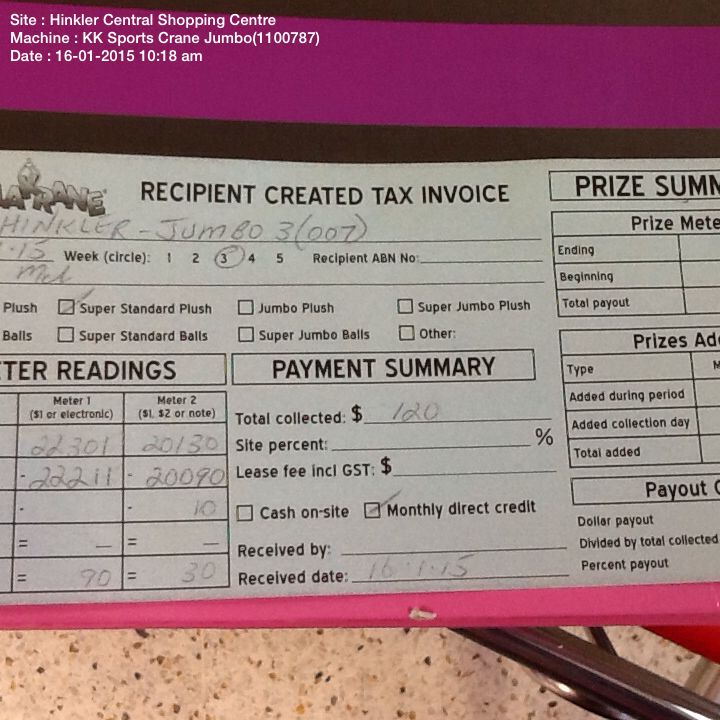 Site : Hinkler Central Shopping Centre
Machine : KK Sports Crane Jumbo(1100787)
Date : 16-01-2015 10:18 am
RECIPIENT CREATED TAX INVOICE
HINKLER - JUMBO 3(007)
Week (circle): 1 2 3 4 5 Recipient ABN No:
Plush Super Standard Plush Jumbo Plush Super Jumbo Plush
Balls Super Standard Balls Super Jumbo Balls Other:
TER READINGS
Meter 1 Meter 2
($1 or electronic) ($1, $2 or note)
22301 20130
- 22211 - 20090
- - 10
= — = —
= 90 = 30
PAYMENT SUMMARY
Total collected: $ 120
Site percent: %
Lease fee incl GST: $
Cash on-site Monthly direct credit
Received by:
Received date: 16.1.15
PRIZE SUMM
Prize Mete
Ending
Beginning
Total payout
Prizes Ad
Type M
Added during period
Added collection day
Total added
Payout
Dollar payout
Divided by total collected
Percent payout